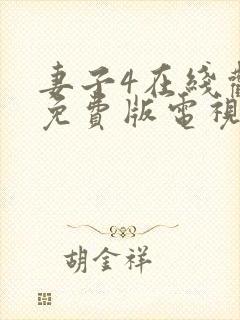 妻子4在綫
免費版電視
胡金祥